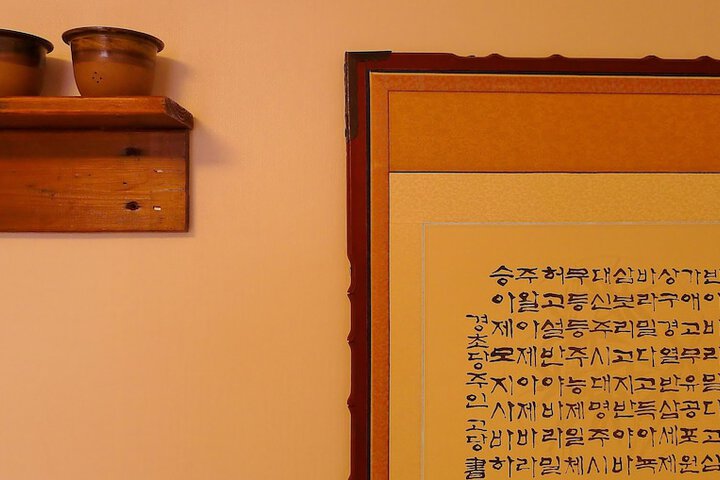 반야바라밀다고심
가애고무유공포원
상구경열반삼세제
바라밀다고득아녹
삼보리고지반야바
대신주시대명주시
무등등주능제일체
허고설반야바라밀
주왈아제아제바라
승아제모지사바하
경초당주인고당書